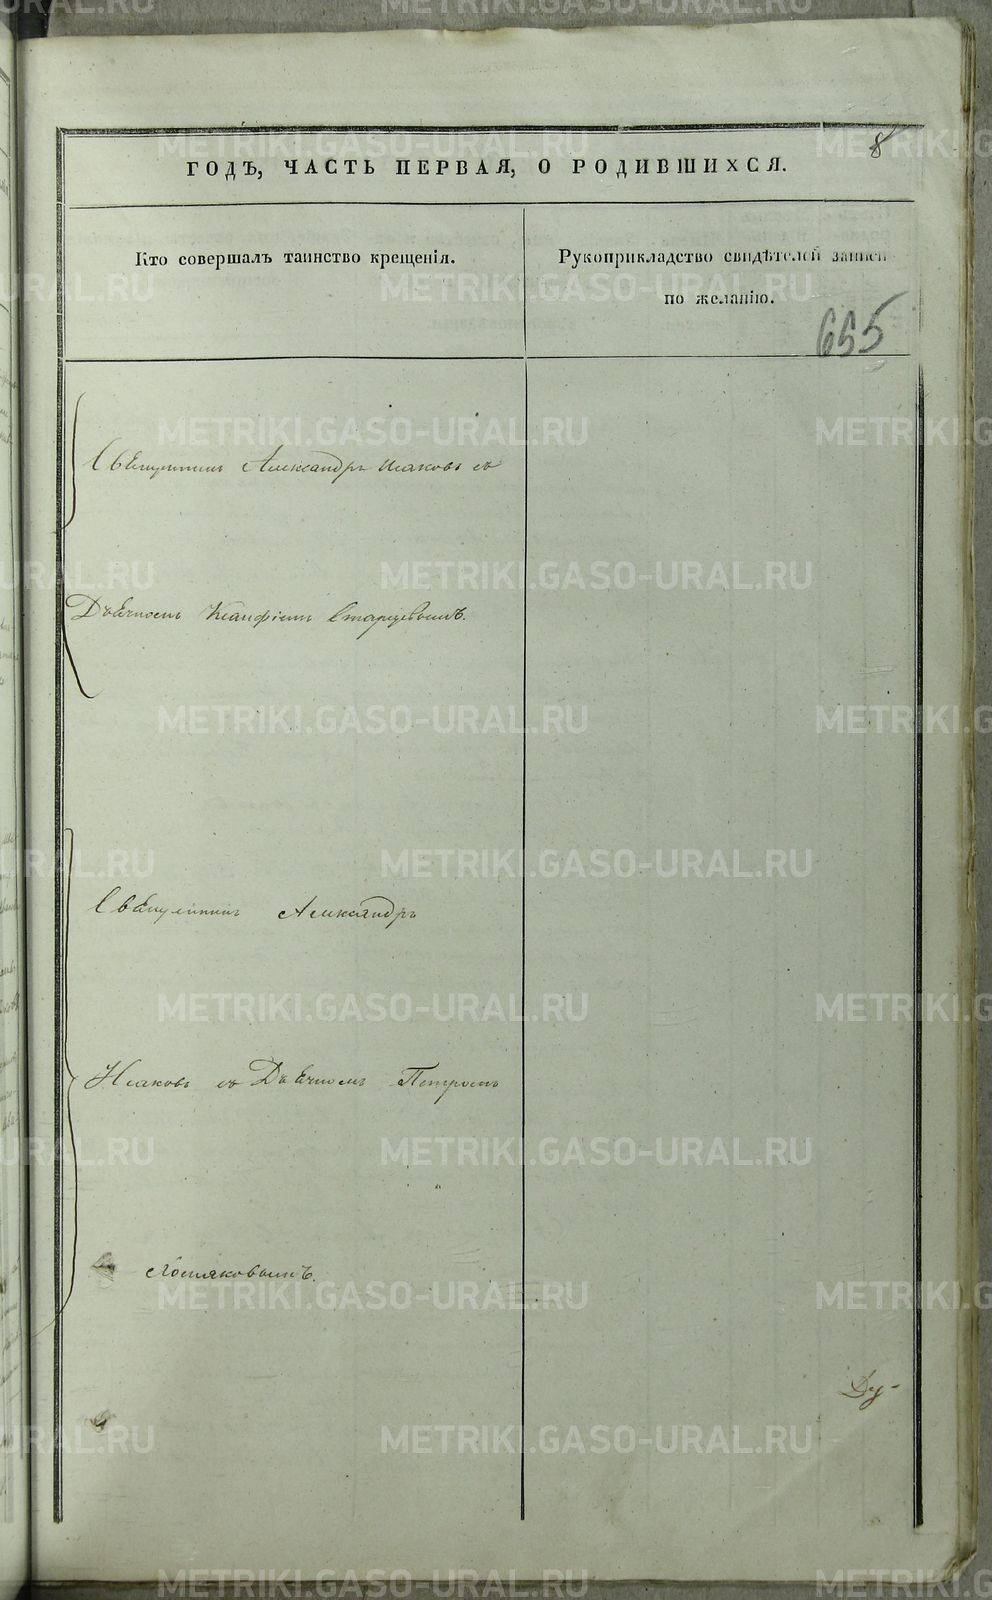 8
ГОДЪ, ЧАСТЬ ПЕРВАЯ, О РОДИВШИХСЯ.
Кто совершалъ таинство крещенія.
Рукоприкладство свидѣтелей записи
по желанію.
655
Священникъ Александръ Исаковъ съ
Дьячкомъ Ксанфіемъ Старцевымъ.
Священникъ Александръ
Исаковъ съ Дьячкомъ Петромъ
Ду-
METRIKI.GASO-URAL.RU